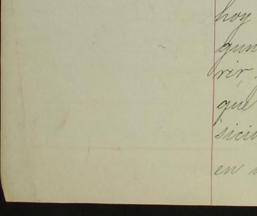 hoy
gun
rir,
que
sici
en